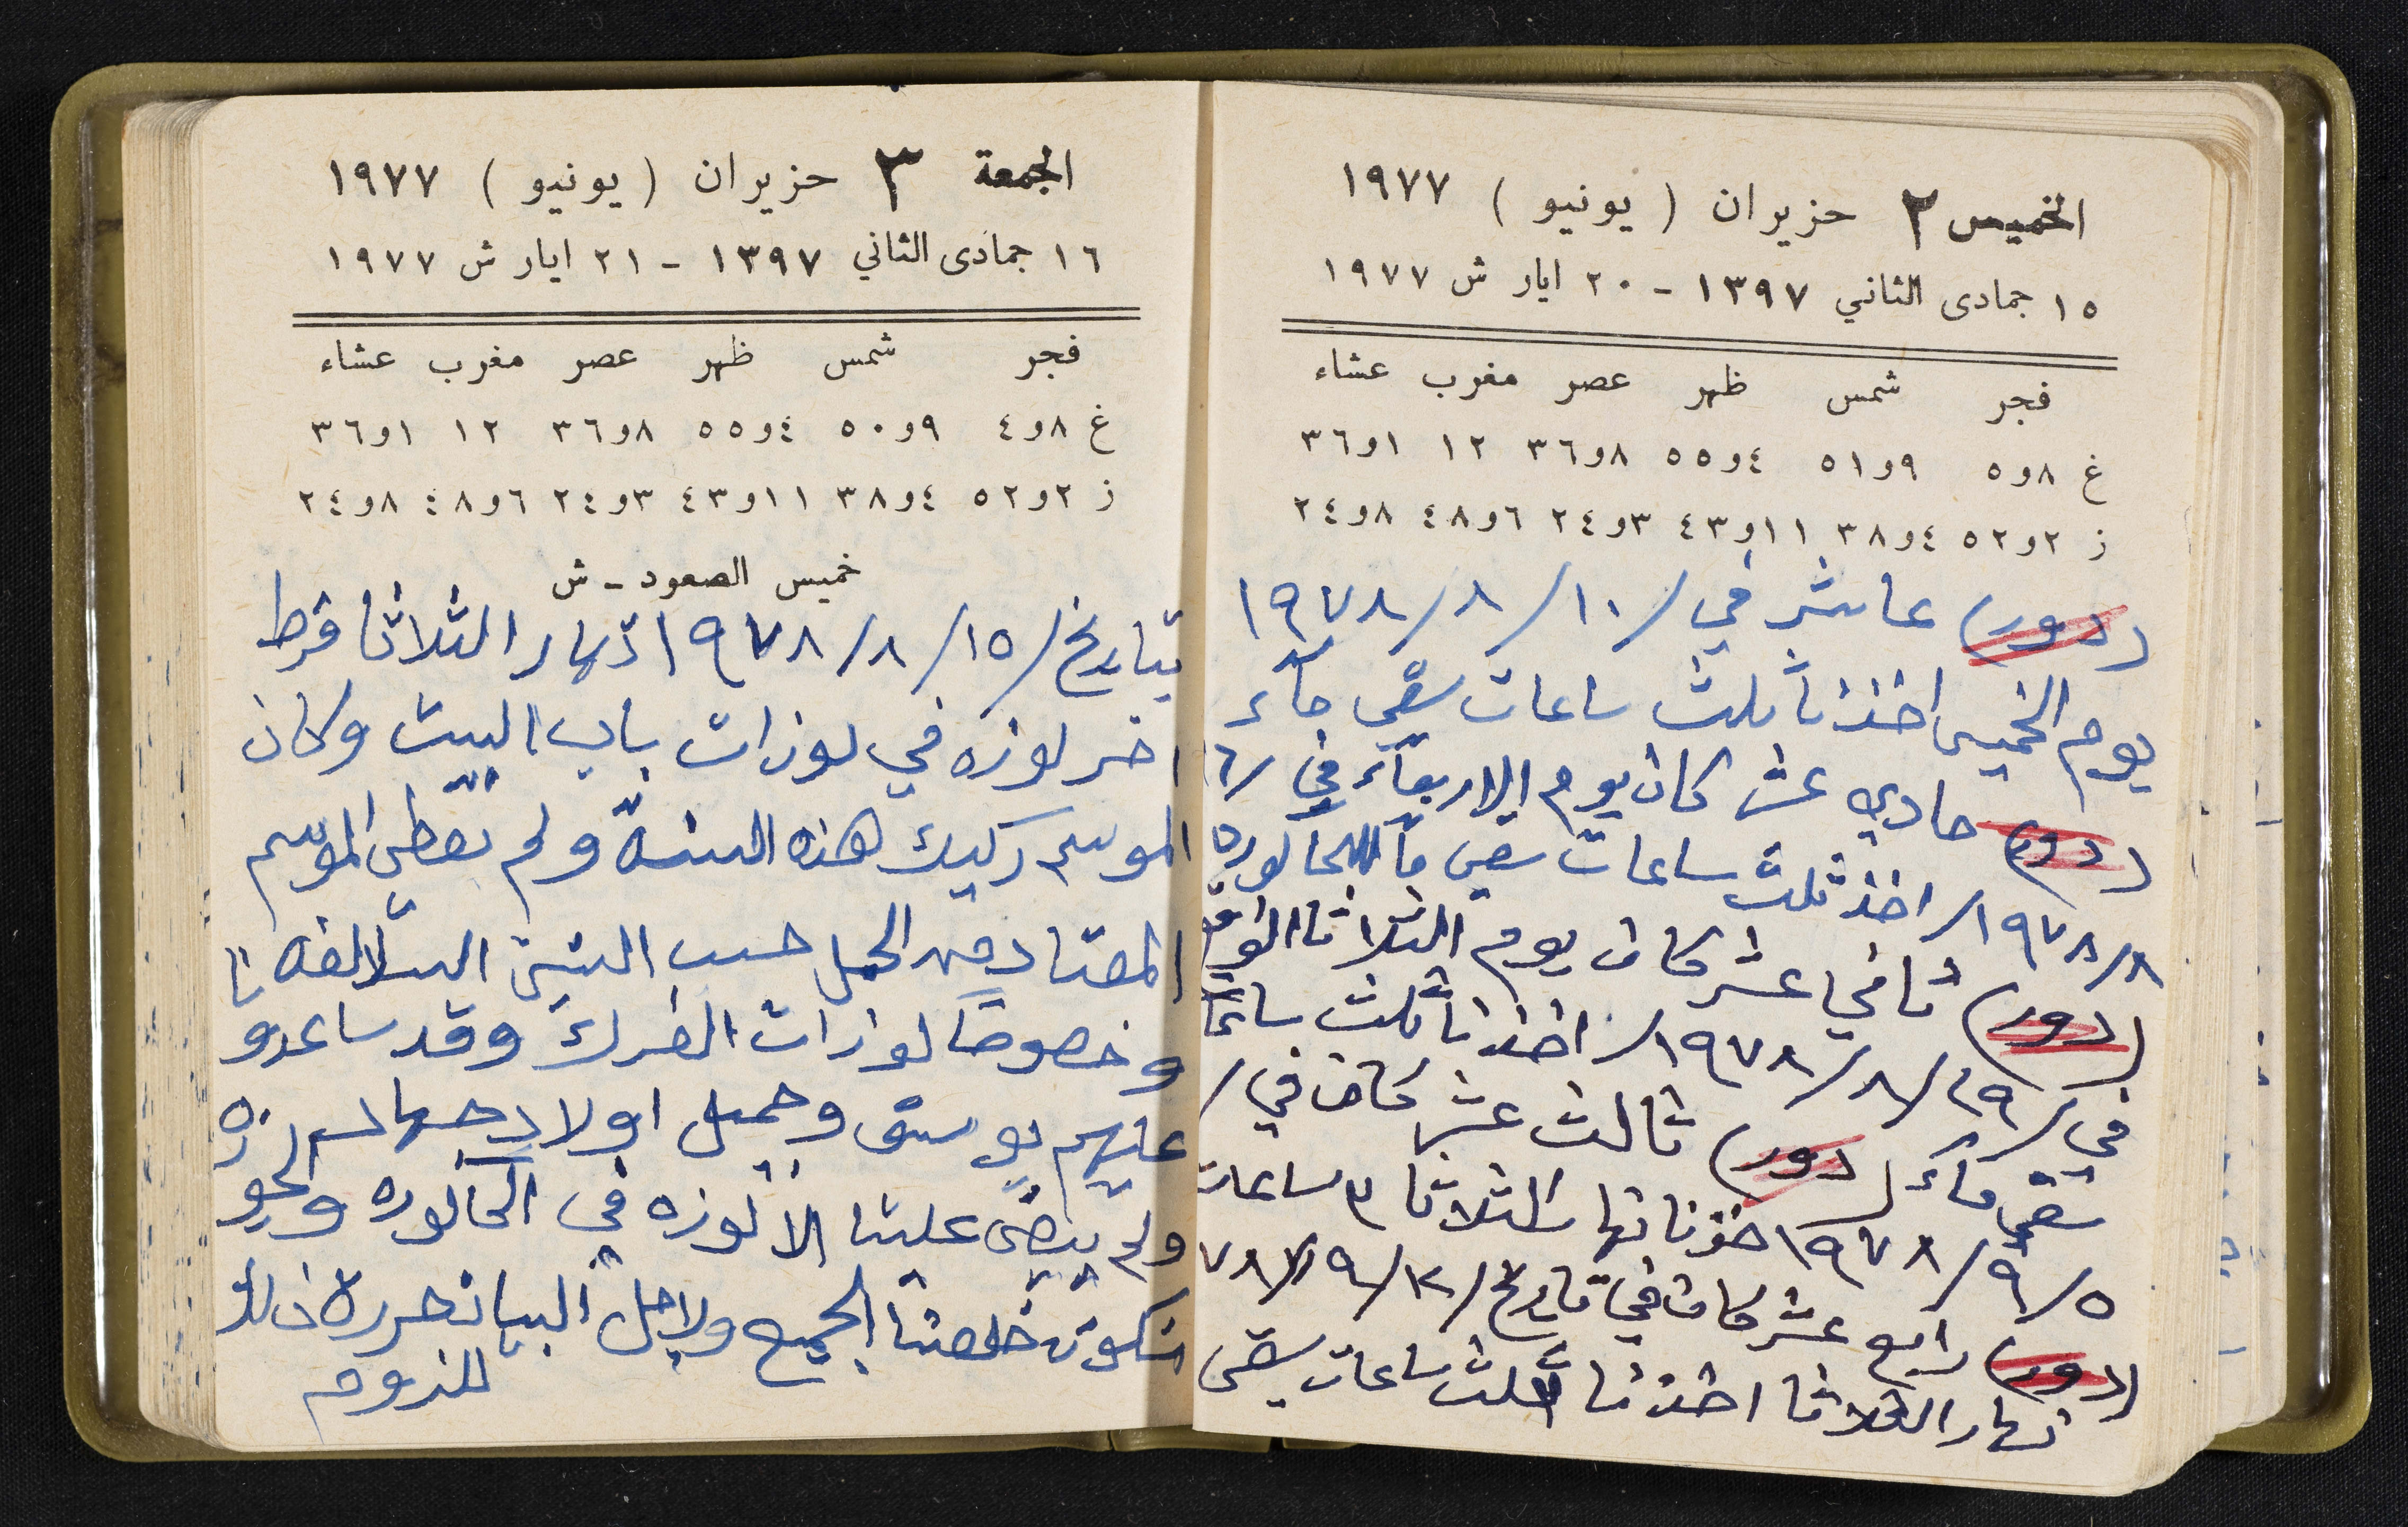 الخميس ٢ حزيران ( يونيو ) ١٩٧٧
١٥ جمادى الثاني ١٣٩٧ - ٢٠ ايار ش ١٩٧٧
فجر شمس ظهر عصر مغرب عشاء
غ ٨و٥ ٩و٥١ ٤و٥٥ ٨و٣٦ ١٢ ١و٣٦
ز ٢و٥٢ ٤و٣٨ ١١و٤٣ ٣و٢٤ ٦و٤٨ ٨و٢٤
(دور) عاشر في /١٠/ ٨/ ١٩٧٨
يوم الخميس اخذنا ثلث ساعات سقي ماء
(دور) حادي عشر كان يوم الاربعاء في /١٦
/٨/ ١٩٧٨/ اخذ ثلث ساعات سقي ماء للحاكوره
(دور) ثاني عشر كان يوم الثلاثا الواقع
في /٢٩/ ٨/ ١٩٧٨/ اخذنا ثلث ساعات
سقي ماء (دور) ثالث عشر كان في /
٥/ ٩/ ١٩٧٨ اخذنا نهار الثلاثا ٣ ساعات
(دور) رابع عشر كان في تاريخ /١٢/ ٩/ ٧٨
نهار الثلاثا اخذنا ثلث ساعات سقي
الجمعة ٣ حزيران ( يونيو ) ١٩٧٧
١٦ جمادى الثاني ١٣٩٧ - ٢١ ايار ش ١٩٧٧
فجر شمس ظهر عصر مغرب عشاء
غ ٨و٤ ٩و٥٠ ٤و٥٥ ٨و٣٦ ١٢ ١و٣٦
ز ٢و٥٢ ٤و٣٨ ١١و٤٣ ٣و٢٤ ٦و٤٨ ٨و٢٤
خميس الصعود - ش
بتاريخ /١٥/ ٨/ ١٩٧٨ نهار الثلاثا فرط
اخر لوزه في لوزات باب البيت وكان
الموسم ركيك هذه السنة ولم يعطي الموسم
المعتاد من الحمل حسب السنين السالفه
وخصوصا لوزات الفرك وقد ساعدو
عليهم يوسف وجميل اولاد جهاد
ولم يبقى علينا الا لوزه في الحاكوره والجوزه
نكون خلصنا الجميع ولاجل البيان تحرر ذلك
للزوم